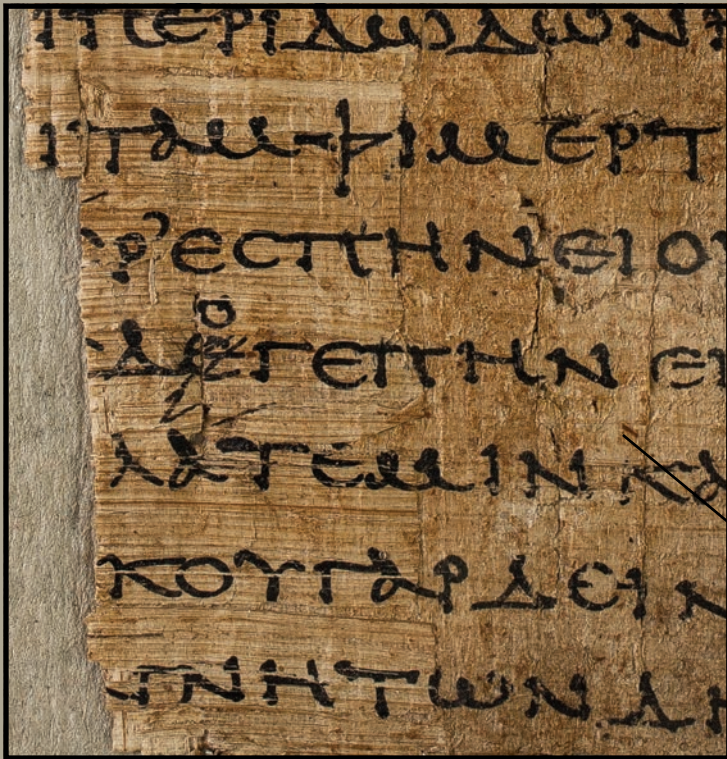 ΙΠΕΡΙΔωΔωΝ
ΙΤΑΜΦΙΜΕΡΤ
ΡʼΕϹΠΗΝΕΙΟ
Ο
ΔΕΓΕΠΗΝΕΙ
ΛΑΤΕΜΙΝΚΑ
ΚΟΥΓΑΡΔΕΙΝ
ΓΝΗΤωΝΔ